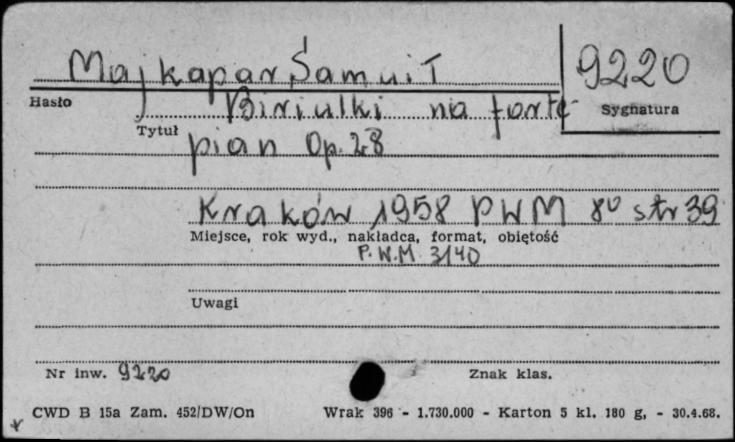 Majkapar Samuił
9220
Hasło
Biriulki na forte-
Sygnatura
Tytuł
pian Op. 28
Kraków 1958 PWM 8º str 39
Miejsce, rok wyd., nakładca, format, obiętość
P.W.M. 3140
Uwagi
Nr inw. 9220
Znak klas.
CWD B 15a Zam. 452/DW/On Wrak 396 - 1.730.000 - Karton 5 kl. 180 g, - 30.4.68.